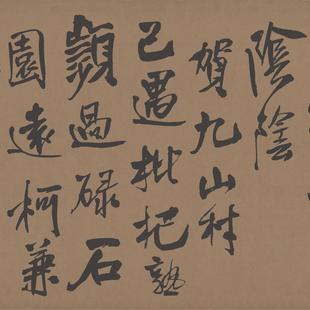 陰陰
賀九山村
已遇枇杷熟
過碌石
園遠柯兼